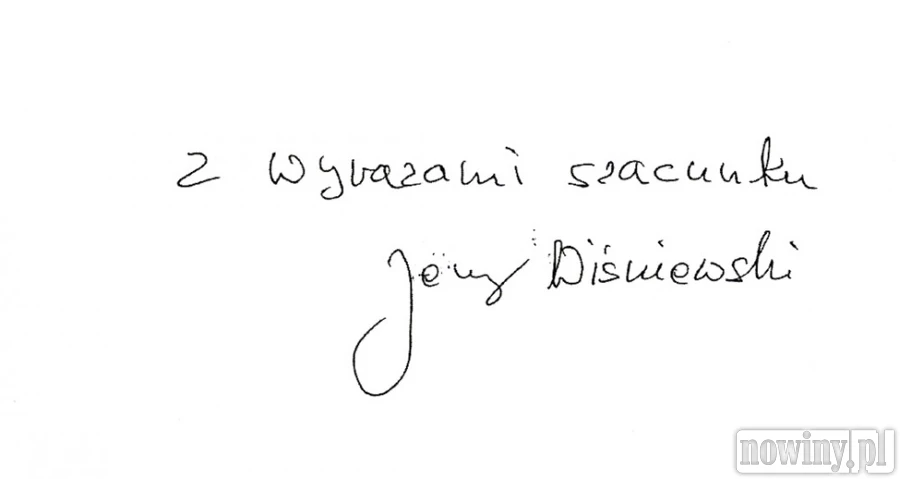 z wyrazami szacunku
Jerzy Wiśniewski
nowiny.pl